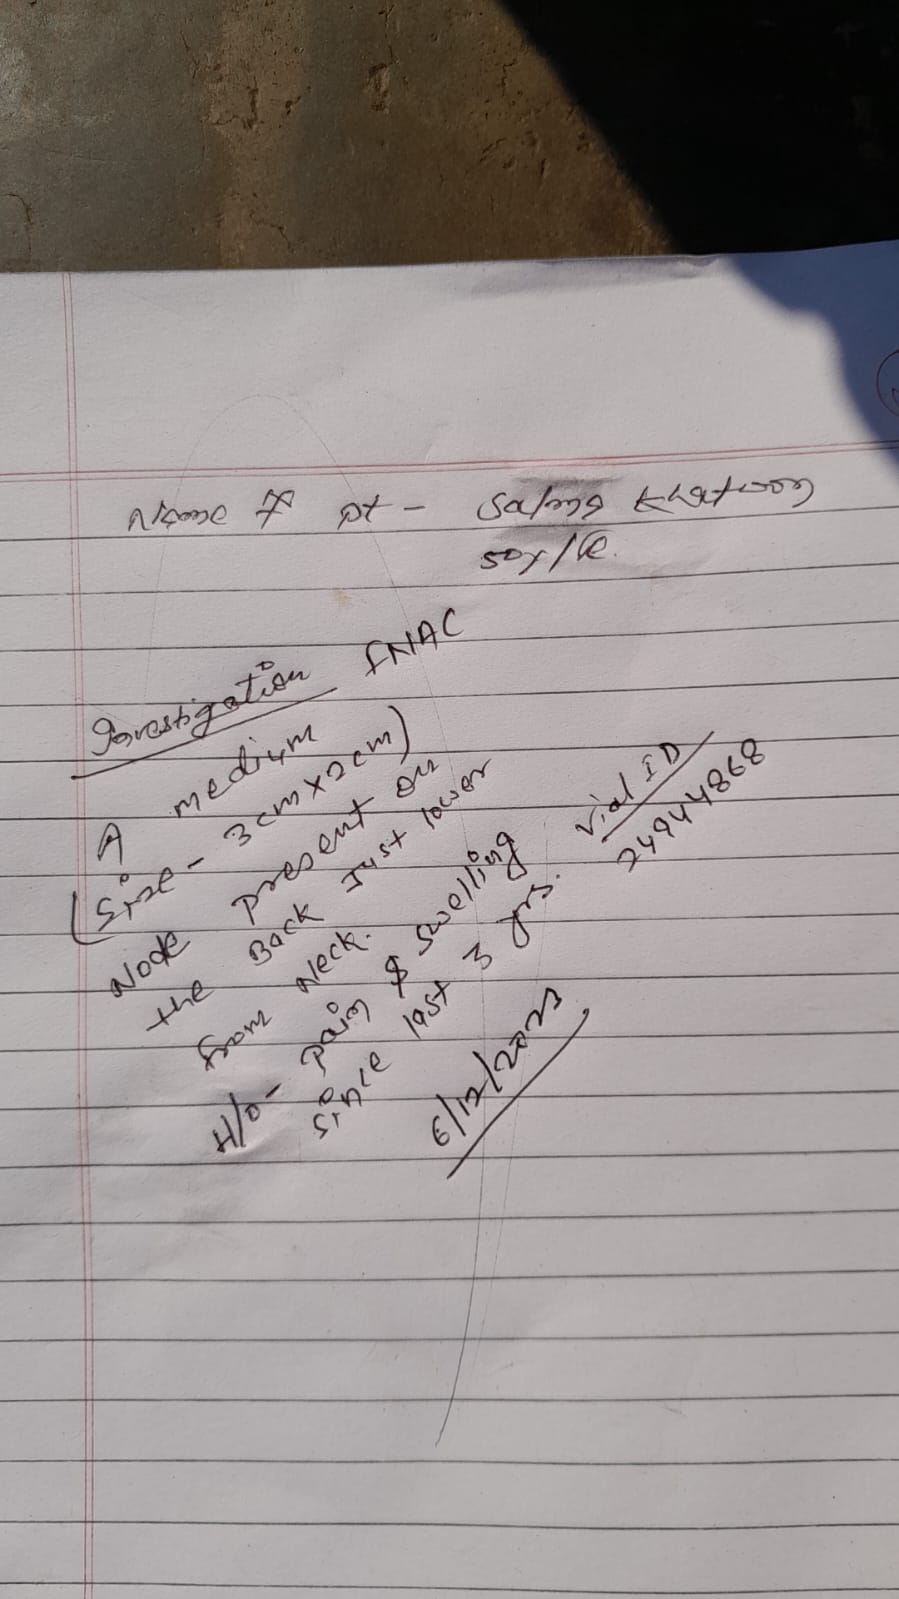 Name of pt - Salma Khatoon
50y/F.
Investigation FNAC
A medium
(Size - 3cm x 2cm)
Node present on
the Back Just lower
from Neck.
H/O - pain & swelling
since last 3 yrs.
Vial ID
24944868
6/12/2023